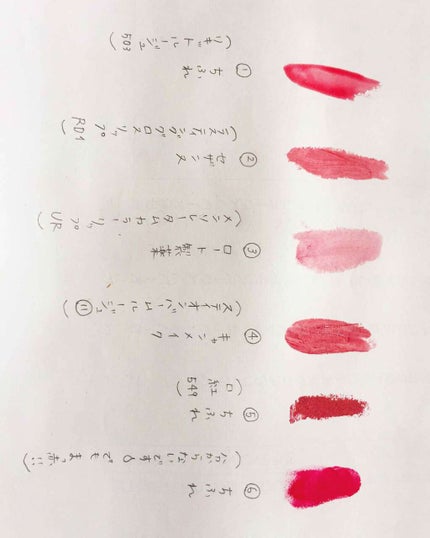 ① ちふれ
(リキッドルージュ
503)
② セザンヌ
(ラスティンググロスリップ
RD1)
③ ロート製薬
(メンソレータムカラーリップ
UR)
④ キャンメイク
(ステイオンバームルージュ
⑪)
⑤ ちふれ
(口紅
549)
⑥ ちふれ
(分からないですでもまっ赤!!)